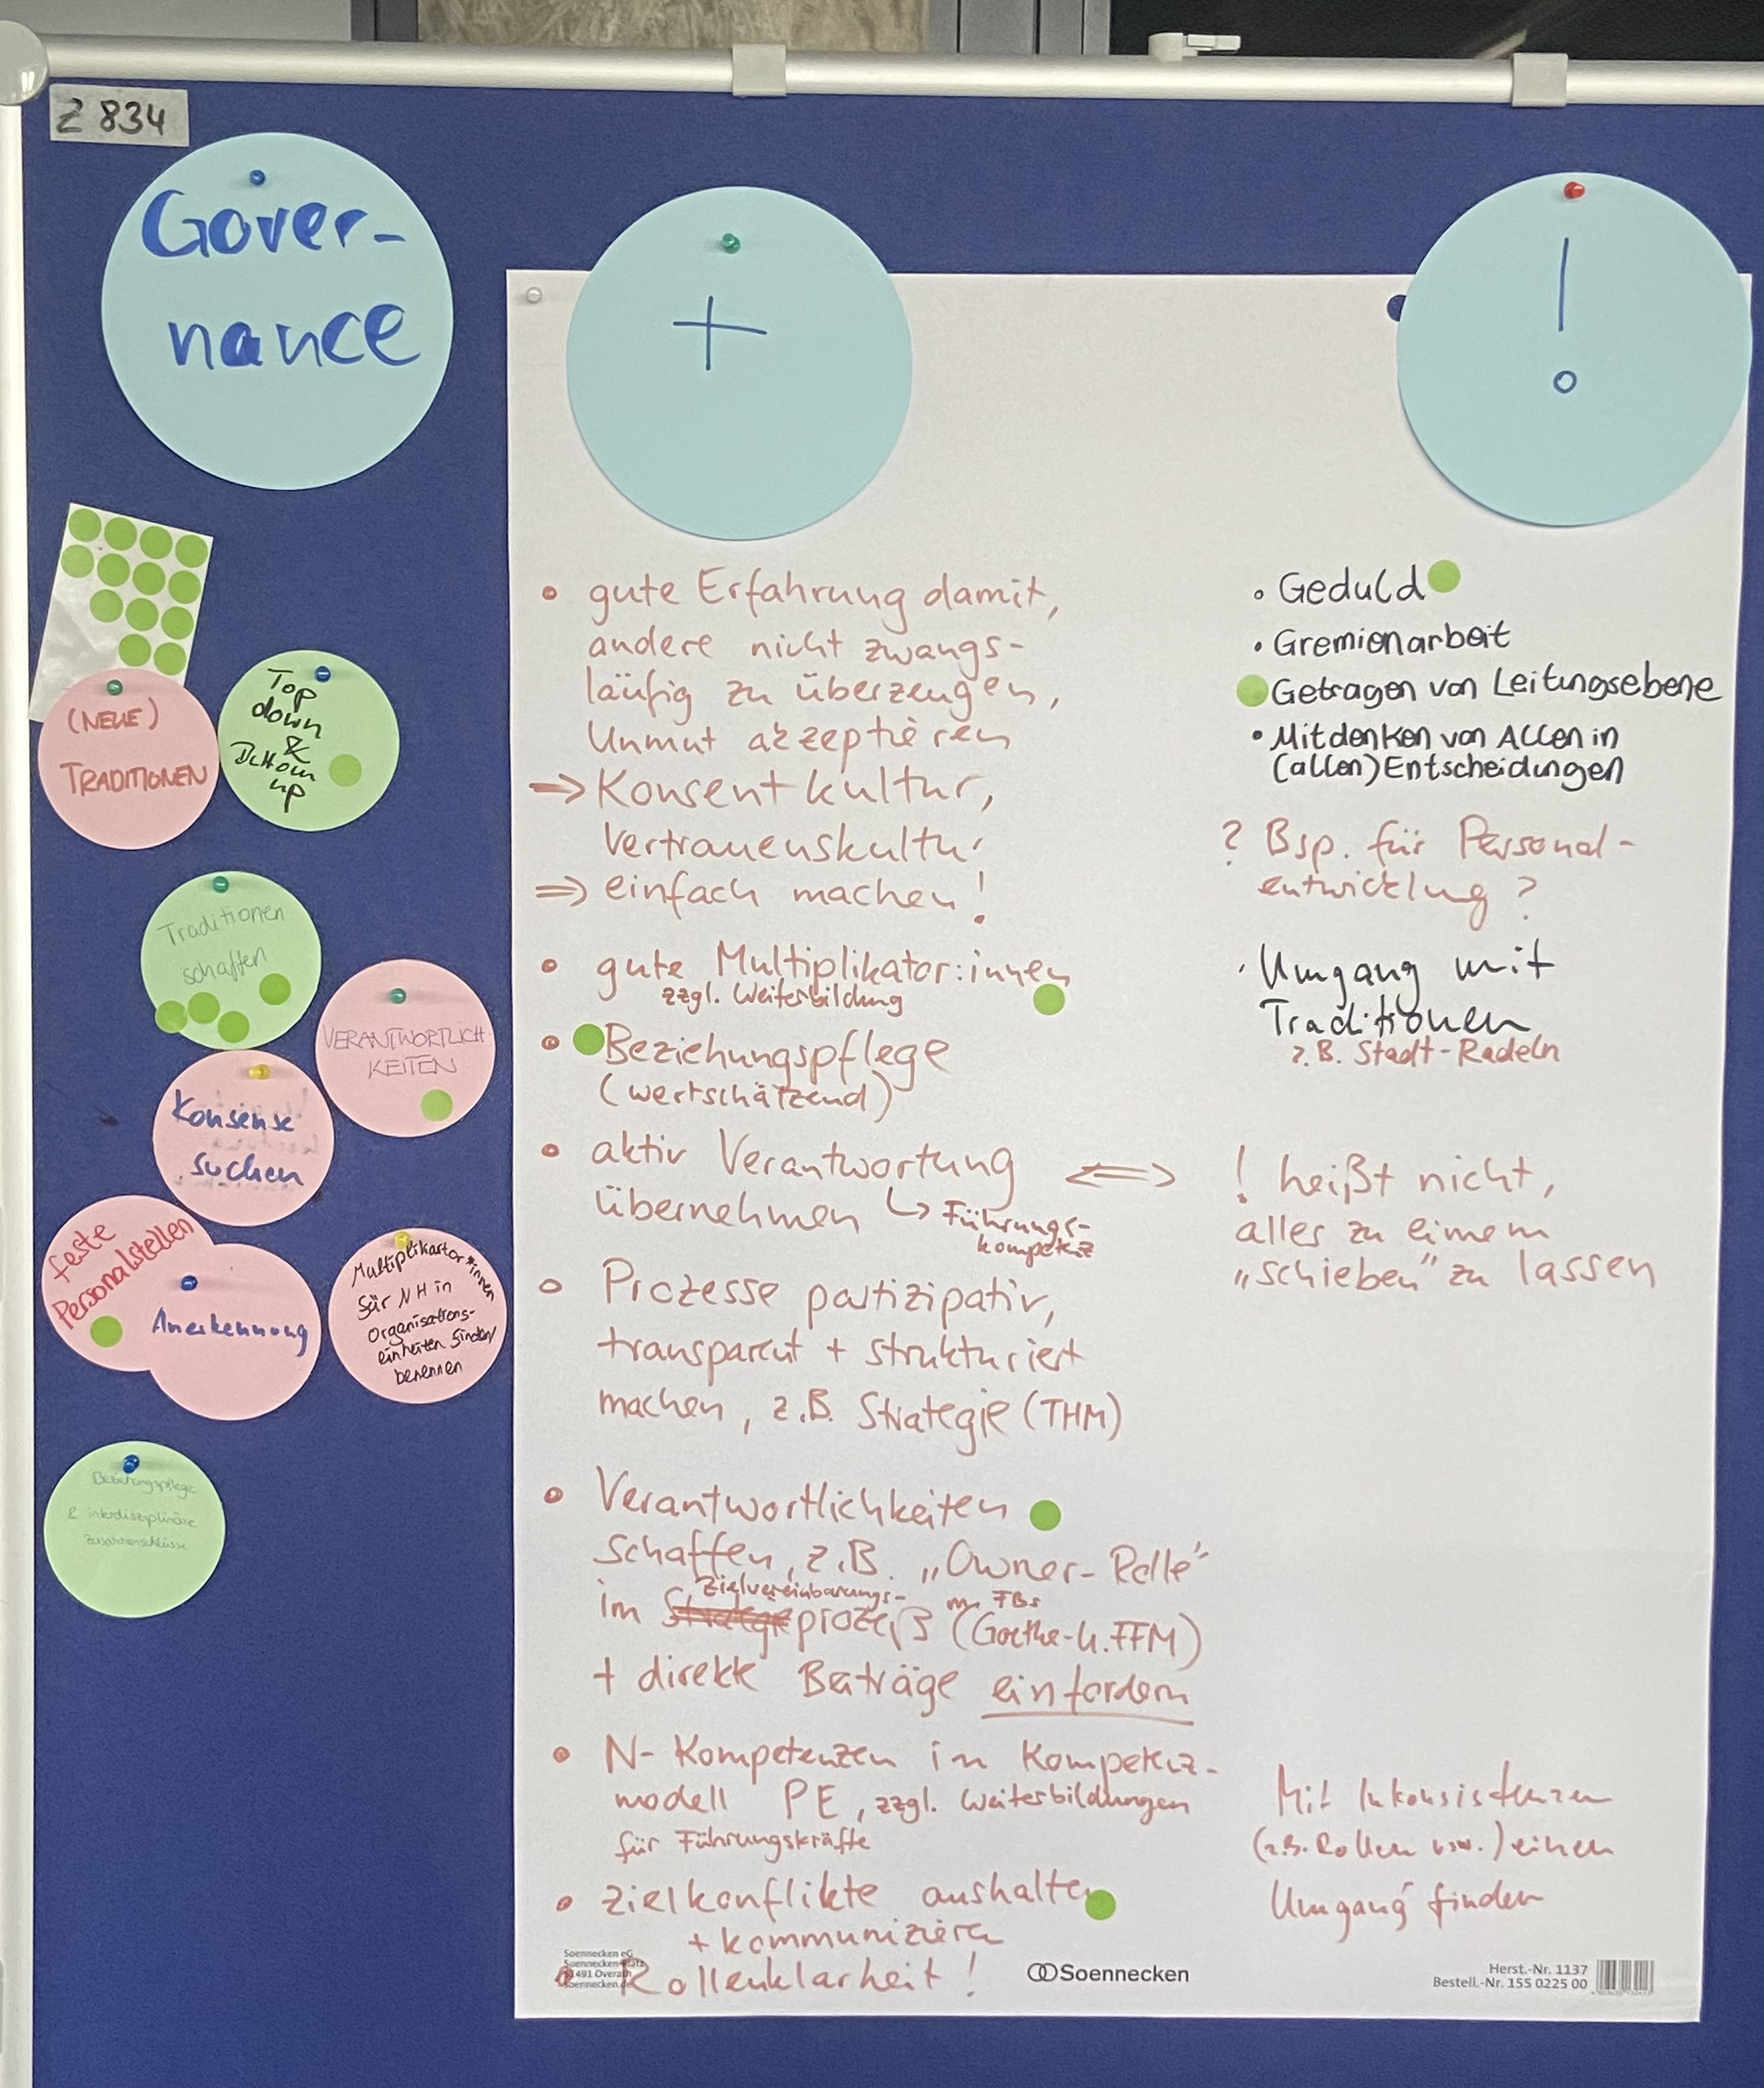 Z 834
Gover-
nance
+
!
(NEUE)
TRADITIONEN
Top
down
&
Bottom
up
Traditionen
schaffen
VERANTWORTLICH
KEITEN
Konsense
suchen
feste
Personalstellen
Anerkennung
Multiplikator*innen
für NH in
Organisations-
einheiten finden/
benennen
Beziehungspflege
& interdisziplinäre
Zusammenschlüsse
• gute Erfahrung damit,
andere nicht zwangs-
läufig zu überzeugen,
Unmut akzeptieren
→ Konsentkultur,
Vertrauenskultur
⇒ einfach machen!
• gute Multiplikator:innen
zzgl. Weiterbildung
• Beziehungspflege
(wertschätzend)
• aktiv Verantwortung
übernehmen ↳ Führungs-
kompetenz
• Prozesse partizipativ,
transparent + strukturiert
machen, z.B. Strategie (THM)
• Verantwortlichkeiten
schaffen, z.B. „Owner-Rolle"
Zielvereinbarungs- m. FBs
im Strategieprozeß (Goethe-U. FFM)
+ direkte Beiträge einfordern
• N-Kompetenzen in Kompetenz-
modell PE, zzgl. Weiterbildungen
für Führungskräfte
• Zielkonflikte aushalten
+ kommunizieren
• Rollenklarheit!
• Geduld
• Gremienarbeit
Getragen von Leitungsebene
• Mitdenken von Allen in
(allen) Entscheidungen
? Bsp. für Personal-
entwicklung?
• Umgang mit
Traditionen
z.B. Stadt-Radeln
⇔ ! heißt nicht,
alles zu einem
„schieben" zu lassen
Mit Inkonsistenzen
(z.B. Rollen usw.) einen
Umgang finden
Soennecken eG
Soennecken-Platz
51491 Overath
soennecken.de
Soennecken
Herst.-Nr. 1137
Bestell.-Nr. 155 0225 00